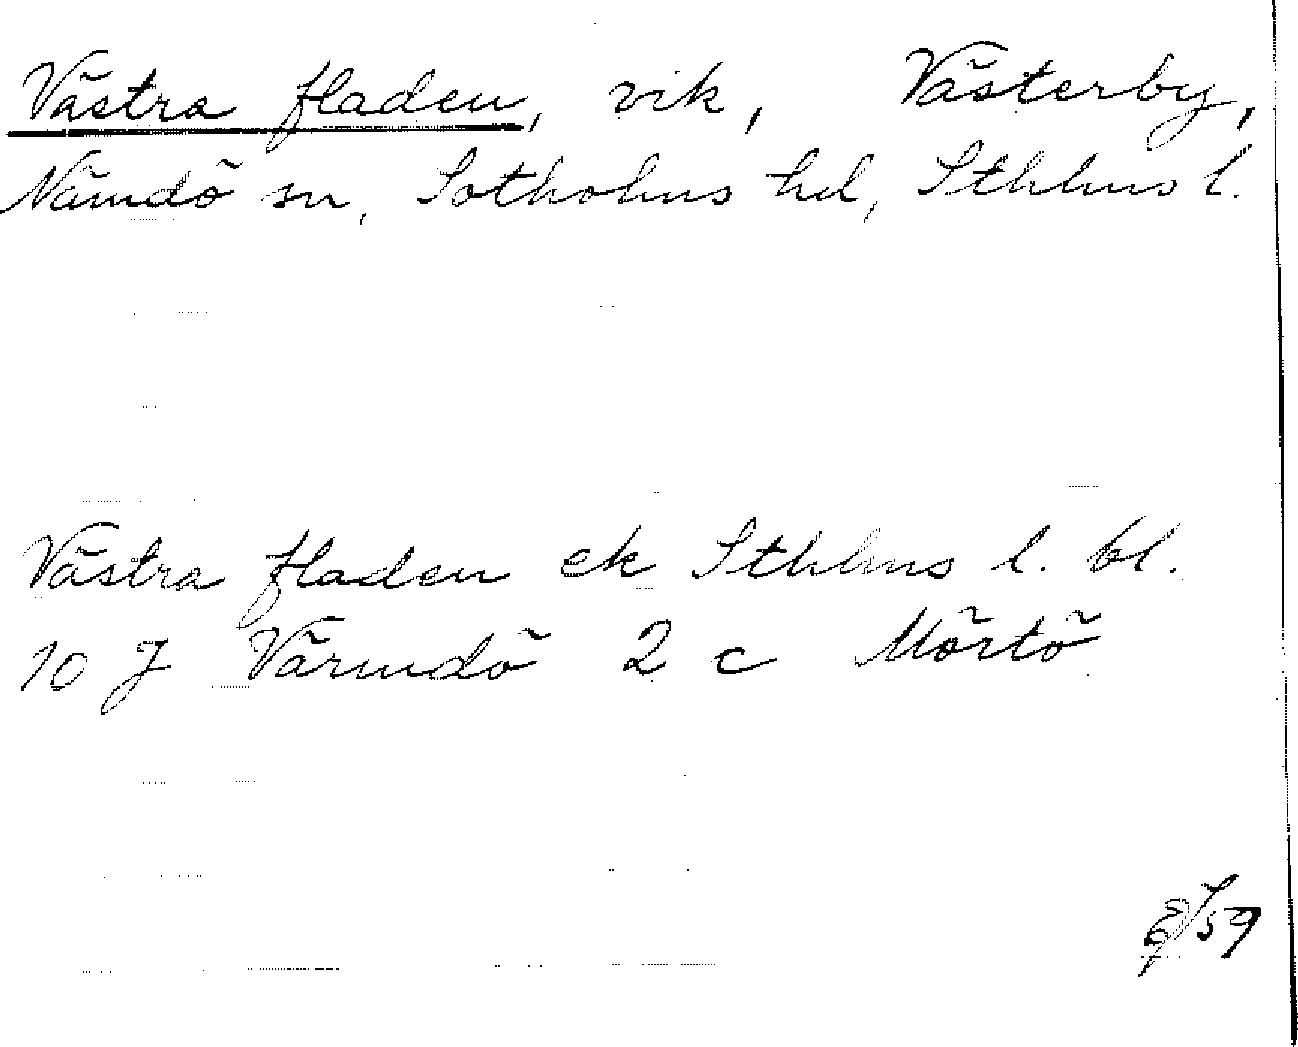 Västra fladen, vik, Västerby,
Nämdö sn, Sotholms hd, Sthlms l.
Västra fladen ek Sthlms l. bl.
10 J Värmdö 2 c Mörtö
/59